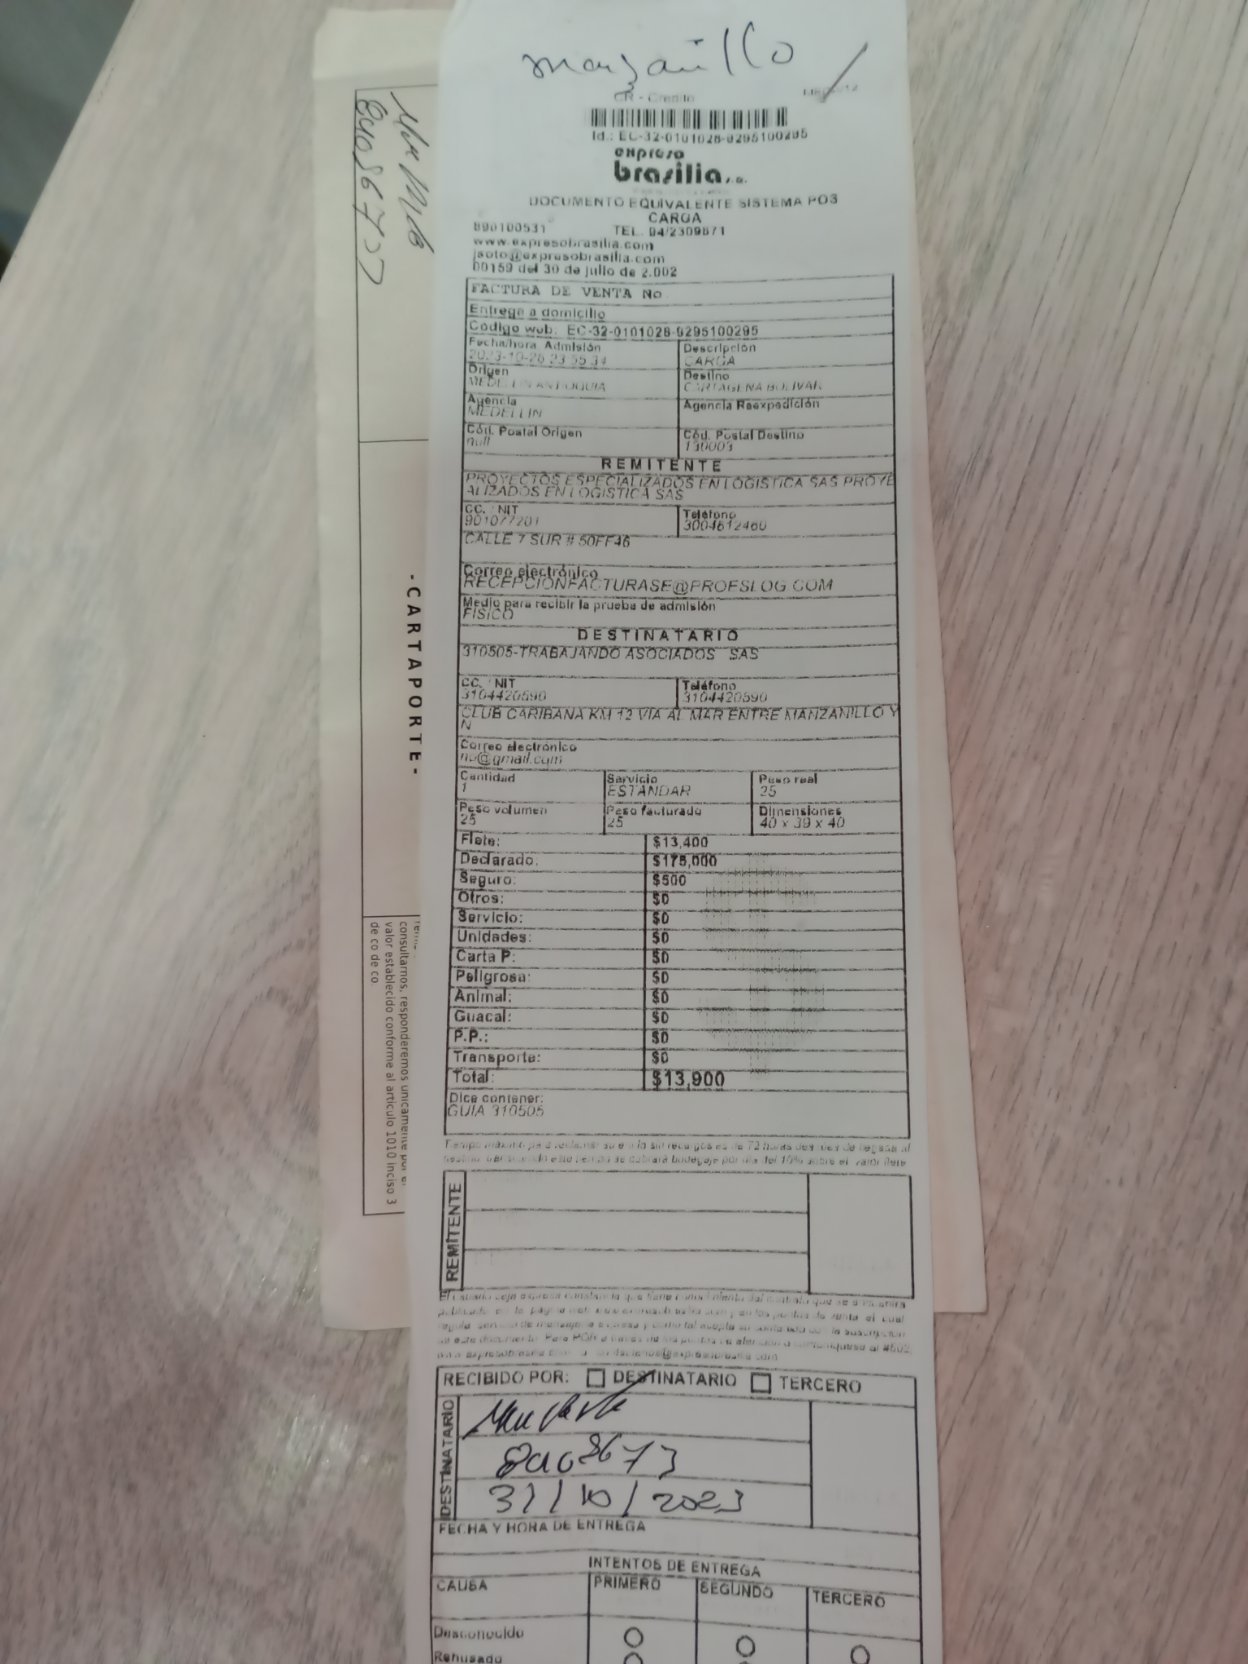 manzanillo
CR - Credito
Id.: EC-32-0101028-9295100295
expreso
brasilia s.a.
DOCUMENTO EQUIVALENTE SISTEMA POS
CARGA
890100531 TEL. 94/2309871
www.expresobrasilia.com
jsoto@expresobrasilia.com
00159 del 30 de julio de 2.002
FACTURA DE VENTA No
Entrega a domicilio
Código web: EC-32-0101028-9295100295
Fecha/hora Admisión Descripción
CARGA
Origen Destino
MEDELLIN ANTIOQUIA CARTAGENA BOLIVAR
Agencia Agencia Reexpedición
MEDELLIN
Cód. Postal Origen Cód. Postal Destino
null 130003
REMITENTE
PROYECTOS ESPECIALIZADOS EN LOGISTICA SAS PROYE
ALIZADOS EN LOGISTICA SAS
CC. / NIT Teléfono
901077201 3004612460
CALLE 7 SUR # 50FF46
Correo electrónico
RECEPCIONFACTURASE@PROESLOG.COM
Medio para recibir la prueba de admisión
FISICO
DESTINATARIO
310505-TRABAJANDO ASOCIADOS SAS
CC. / NIT Teléfono
3104420590 3104420590
CLUB CARIBANA KM 12 VIA AL MAR ENTRE MANZANILLO Y
N
Correo electrónico
no@gmail.com
Cantidad Servicio Peso real
1 ESTANDAR 25
Peso volumen Peso facturado Dimensiones
25 25 40 x 39 x 40
Flete: $13,400
Declarado: $175,000
Seguro: $500
Otros: $0
Servicio: $0
Unidades: $0
Carta P: $0
Peligrosa: $0
Animal: $0
Guacal: $0
P.P.: $0
Transporte: $0
Total: $13,900
Dice contener:
GUIA 310505
REMITENTE
RECIBIDO POR: DESTINATARIO TERCERO
DESTINATARIO
31/10/2023
FECHA Y HORA DE ENTREGA
INTENTOS DE ENTREGA
CAUSA PRIMERO SEGUNDO TERCERO
Desconocido
Rehusado
-CARTAPORTE-
consultarnos, responderemos unicamente por el
valor establecido conforme al artículo 1010 inciso 3
de co de co